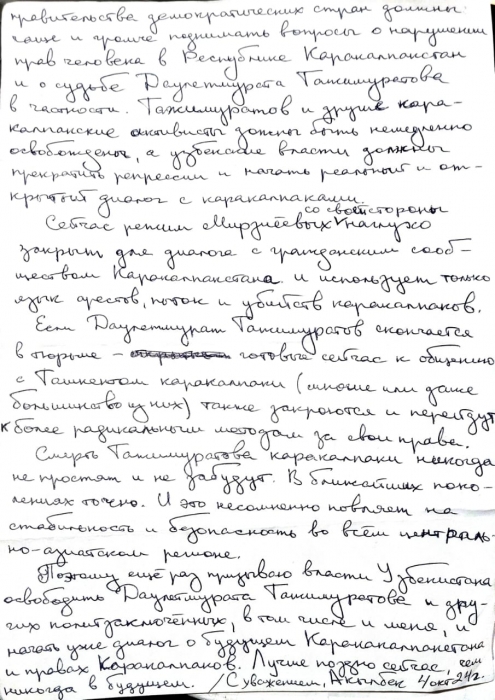 правительства демократических стран должны
чаще и громче поднимать вопросы о нарушении
прав человека в Республике Каракалпакстан
и о судьбе Даулетмурата Тажимуратова
в частности. Тажимуратов и другие кара-
калпакские активисты должны быть немедленно
освобождены, а узбекские власти должны
прекратить репрессии и начать реальный и от-
крытый диалог с каракалпаками.
Сейчас режим Мирзиёевых со своей стороны наглухо
закрыт для диалога с гражданским сооб-
ществом Каракалпакстана и использует только
язык арестов, пыток и убийств каракалпаков.
Если Даулетмурат Тажимуратов скончается
в тюрьме – готовые сейчас к общению
с Ташкентом каракалпаки (многие или даже
большинство из них) также закроются и перейдут
к более радикальным методам за свои права.
Смерть Тажимуратова каракалпаки никогда
не простят и не забудут. В ближайших поко-
лениях точно. И это несомненно повлияет на
стабильность и безопасность во всём централь-
но-азиатском регионе.
Поэтому ещё раз призываю власти Узбекистана
освободить Даулетмурата Тажимуратова и дру-
гих политзаключённых, в том числе и меня, и
начать уже диалог о будущем Каракалпакстана
и правах Каракалпаков. Лучше поздно сейчас, чем
никогда в будущем. /С уважением, Акылбек 4 окт 24г.